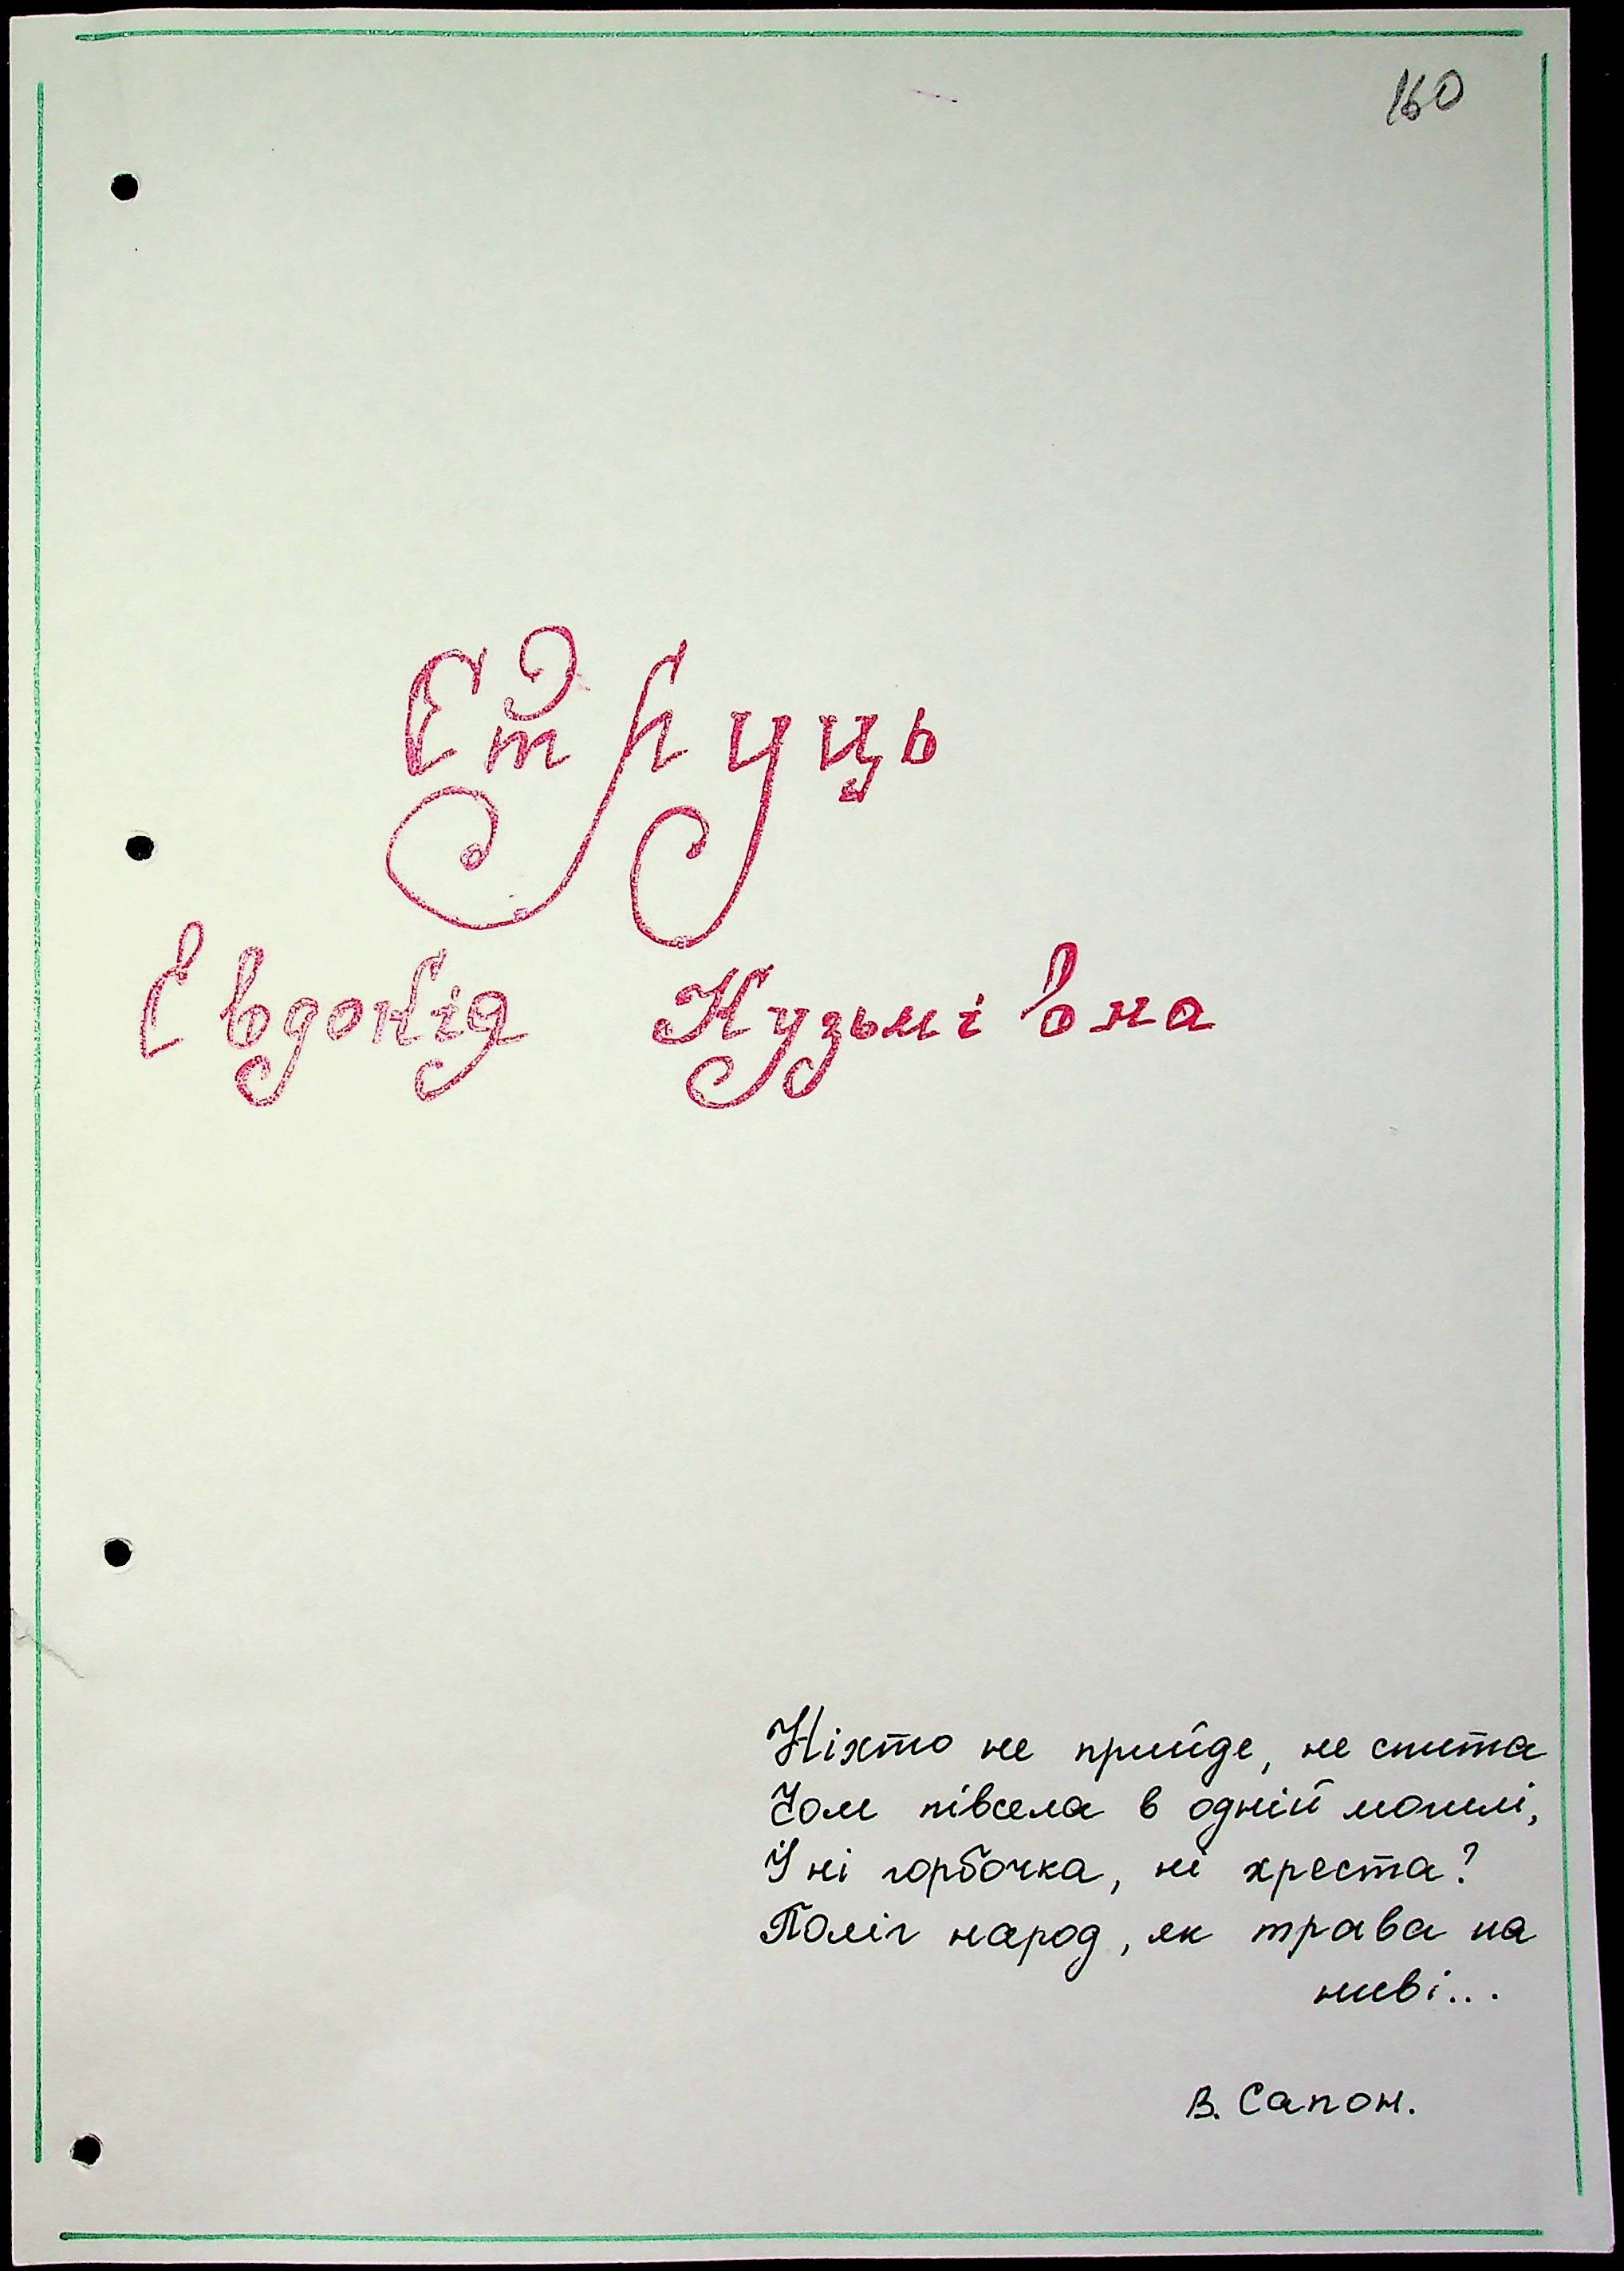 160
Еткуць
Євдокія Кузьмівна
Ніхто не прийде, не спита
Чом півсела в одній могилі,
Й ні горбочка, ні хреста?
Поліг народ, як трава на
ниві...
В. Сапон.